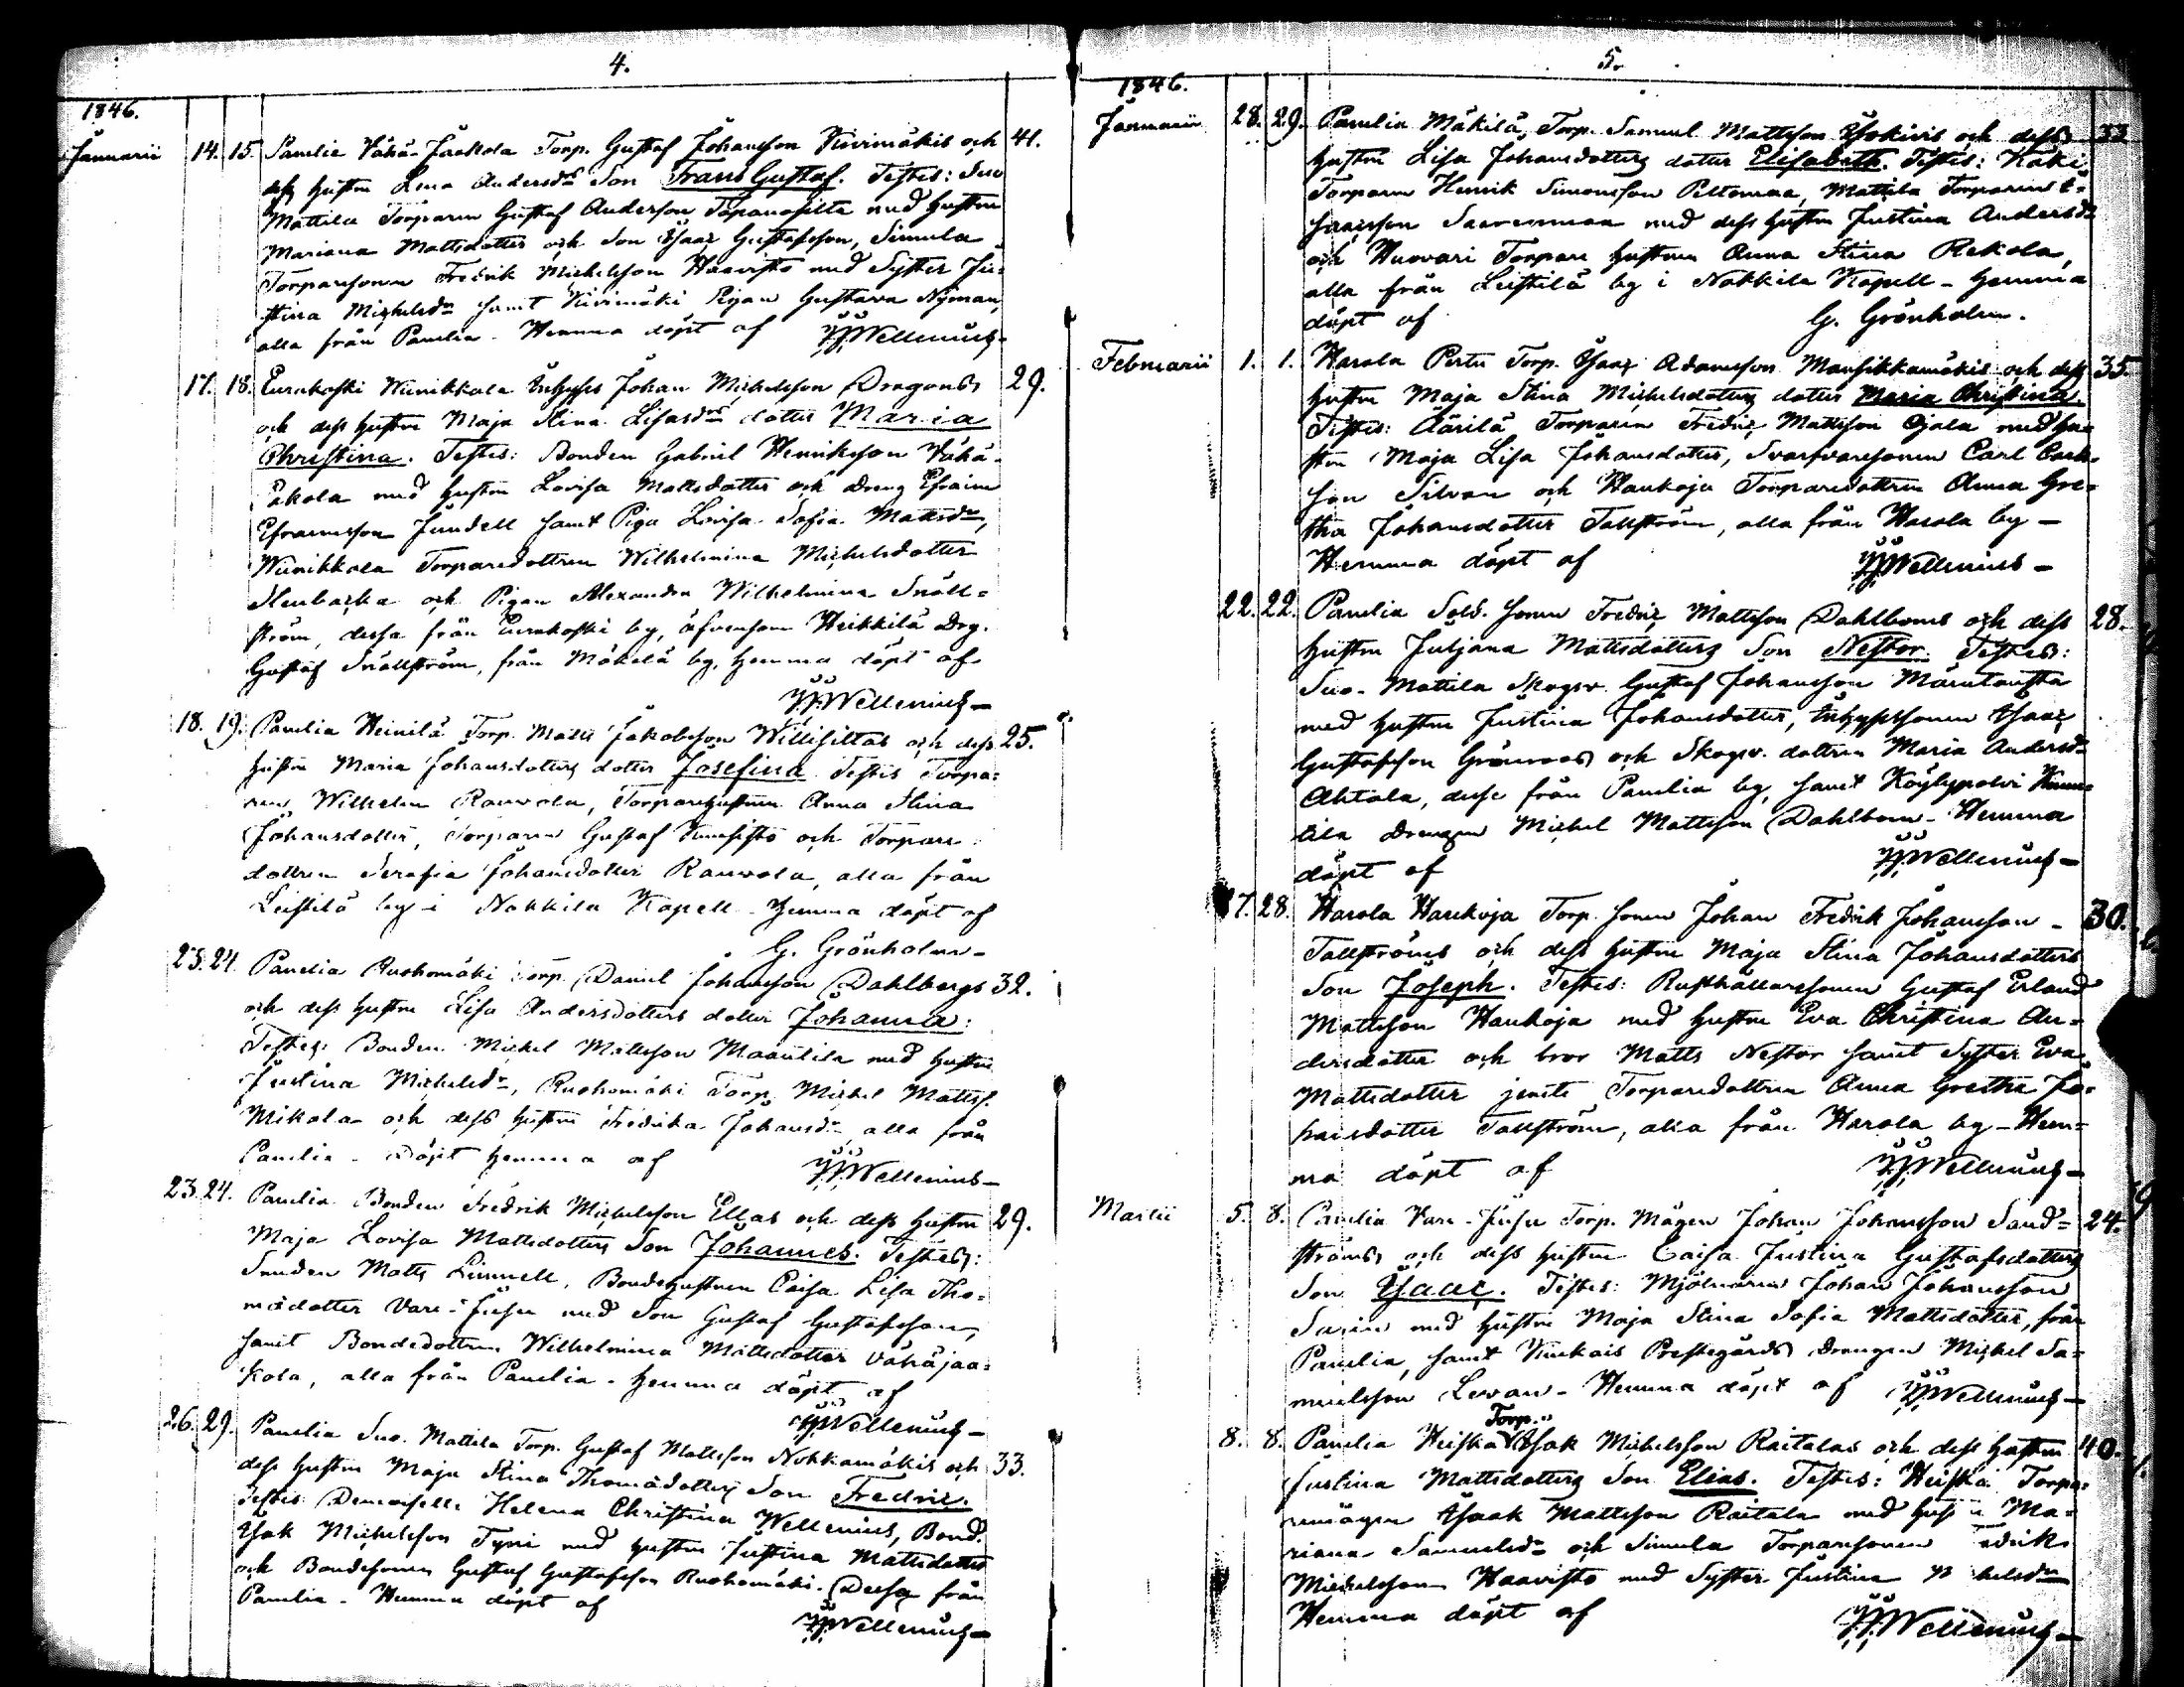 4.
1846.
Januarii 14. 15. Panelia Vähä-Jaakola Torp. Gustaf Johansson Kivimäkis och 41.
dess hustru Lena Andersdrs Son Frans Gustaf. Testes: Suo
Mattila Torparen Gustaf Andersson Tapanosilta med hustru
Mariana Mattsdotter och Son Isaac Gustafsson, Simula
Torparsonen Fredrik Michelsson Haavisto med Syster Ju-
stina Michelsdr samt Kivimäki Pigan Gustava Nyman,
alla från Panelia. Hemma döpt af Wellenius
17. 18. Eurakoski Wiinikkala Inhyses Johan Michelsson Dragons 29.
och dess hustru Maja Stina Lisasdrs dotter Maria
Christina. Testes: Bonden Gabriel Henriksson Vähä-
äkola med hustru Lovisa Mattsdotter och Dreng Efraim
Efraimsson Jundell samt Piga Lovisa Sofia Mattsdr,
Wiinikkala Torparedottren Wilhelmina Michelsdotter
Stenbacka och Pigan Alexandra Wilhelmina Snäll-
ström, dessa från Eurakoski by, äfvensom Heikkilä Drg.
Gustaf Snällström, från Mäkelä by, hemma döpt af
Wellenius
18. 19. Panelia Heinilä Torp. Matts Jakobsson Willisiltas och dess 25.
hustru Maria Johansdotters dotter Josefina. Testes Torpa-
ren Wilhelm Rauvola, Torparehustrun Anna Stina
Johansdotter, Torparen Gustaf Kuusisto och Torpare
dottren Serafia Johansdotter Rauvola, alla från
Leistilä by i Nakkila Kapell. Hemma döpt af
G. Grönholm
23. 24. Panelia Ruohomäki Torp. Daniel Johansson Dahlbergs 32.
och dess hustru Lisa Andersdotters dotter Johanna:
Testes: Bonden Michel Mattsson Maantila med hustru
Justina Michelsdr, Ruohomäki Torp. Michel Mattss.
Mikola och dess hustru Fredrika Johansdr, alla från
Panelia. Döpt hemma af Wellenius
23. 24. Panelia Bonden Fredrik Michelsson Ellas och dess hustru 29.
Maja Lovisa Mattsdotters Son Johannes. Testes:
Smeden Matts Linnell, Bondehustrun Caisa Lisa Tho-
mädotter Vare-Jussu med Son Gustaf Gustafsson,
samt Bondedottren Wilhelmina Mattsdotter Vähäjaa-
kola, alla från Panelia. hemma döpt af
Wellenius
26. 29. Panelia Suo-Mattila Torp. Gustaf Mattsson Nokkamäkis och 33.
dess hustru Maja Stina Thomädotters Son Fredric.
Testes: Demoiselle Helena Christina Wellenius, Bond.
Isak Michelsson Tyni med hustru Justina Mattsdotter
och Bondesonen Gustaf Gustafsson Ruohomäki. Dessa från
Panelia. Hemma döpt af Wellenius
5.
1846.
Januarii 28. 29. Panelia Mäkilä Torp. Samuel Mattsson Isokivis och dess 33
hustru Lisa Johansdotters dotter Elisabeth. Testes: Käki
Torparen Henrik Simonsson Peltomaa, Mattila Torparen
Isaacsson Saarenmaa med dess hustru Justina Andersdr
och Huovari Torpare hustrun Anna Stina Rekola,
alla från Leistilä by i Nakkila Kapell. Hemma
döpt af G. Grönholm.
Februarii 1. 1. Harola Pertu Torp. Isaac Adamsson Mansikkamäkis och dess 35.
hustru Maja Stina Michelsdotters dotter Maria Christina.
Testes: Äärilä Torparen Fredric Mattsson Ojala med hu-
stru Maja Lisa Johansdotter, Svarfvaresonen Carl Carls-
son Silvan och Haukoja Torparedottren Anna Gre-
tha Johansdotter Tallström, alla från Harola by
Hemma döpt af Wellenius
22. 22. Panelia Sold. sonen Fredric Mattsson Dahlboms och dess 28.
hustru Juljana Mattsdotters Son Nestor. Testes:
Suo-Mattila Skogsv. Gustaf Johansson Märntausta
med hustru Justina Johansdotter, Inhysessonen Isaac
Gustafsson Grönroos och Skogsv. dottren Maria Andersdr
Ahtola, desse från Panelia by, samt Köylypolvi
tila Drengen Michel Mattsson Dahlbom. Hemma
döpt af Wellenius
27. 28. Harola Haukoja Torp. sonen Johan Fredrik Johansson 30.
Tallströms och dess hustru Maja Stina Johansdotters
Son Joseph. Testes: Rusthållaresonen Gustaf Erland
Mattsson Haukoja med hustru Eva Christina An-
dersdotter och bror Matts Nestor samt Syster Eva
Mattsdotter jemte Torparedottren Anna Gretha Jo-
hansdotter Tallström, alla från Harola by. Hem-
ma döpt af Wellenius
Martii 5. 8. Panelia Vare-Jussu Torp. Mågen Johan Johansson Sand- 24.
ströms och dess hustru Caisa Justina Gustafsdotters
Son Isaac. Testes: Mjölnaren Johan Johansson
Sarin med hustru Maja Stina Sofia Mattsdotter, från
Panelia, samt Kiukais Prestegårds Drengen Michel Sa-
muelsson Levan. Hemma döpt af Wellenius
8. 8. Panelia Heiska Torp. Isak Michelsson Raitalas och dess hustru 40.
Justina Mattsdotters Son Elias. Testes: Heiska Torpa-
remågen Isaak Mattsson Raitala med hust Ma-
riana Samuelsdr och Simula Torparesonen edrik
Michelsson Haavisto med Syster Justina M helsdr
Hemma döpt af Wellenius